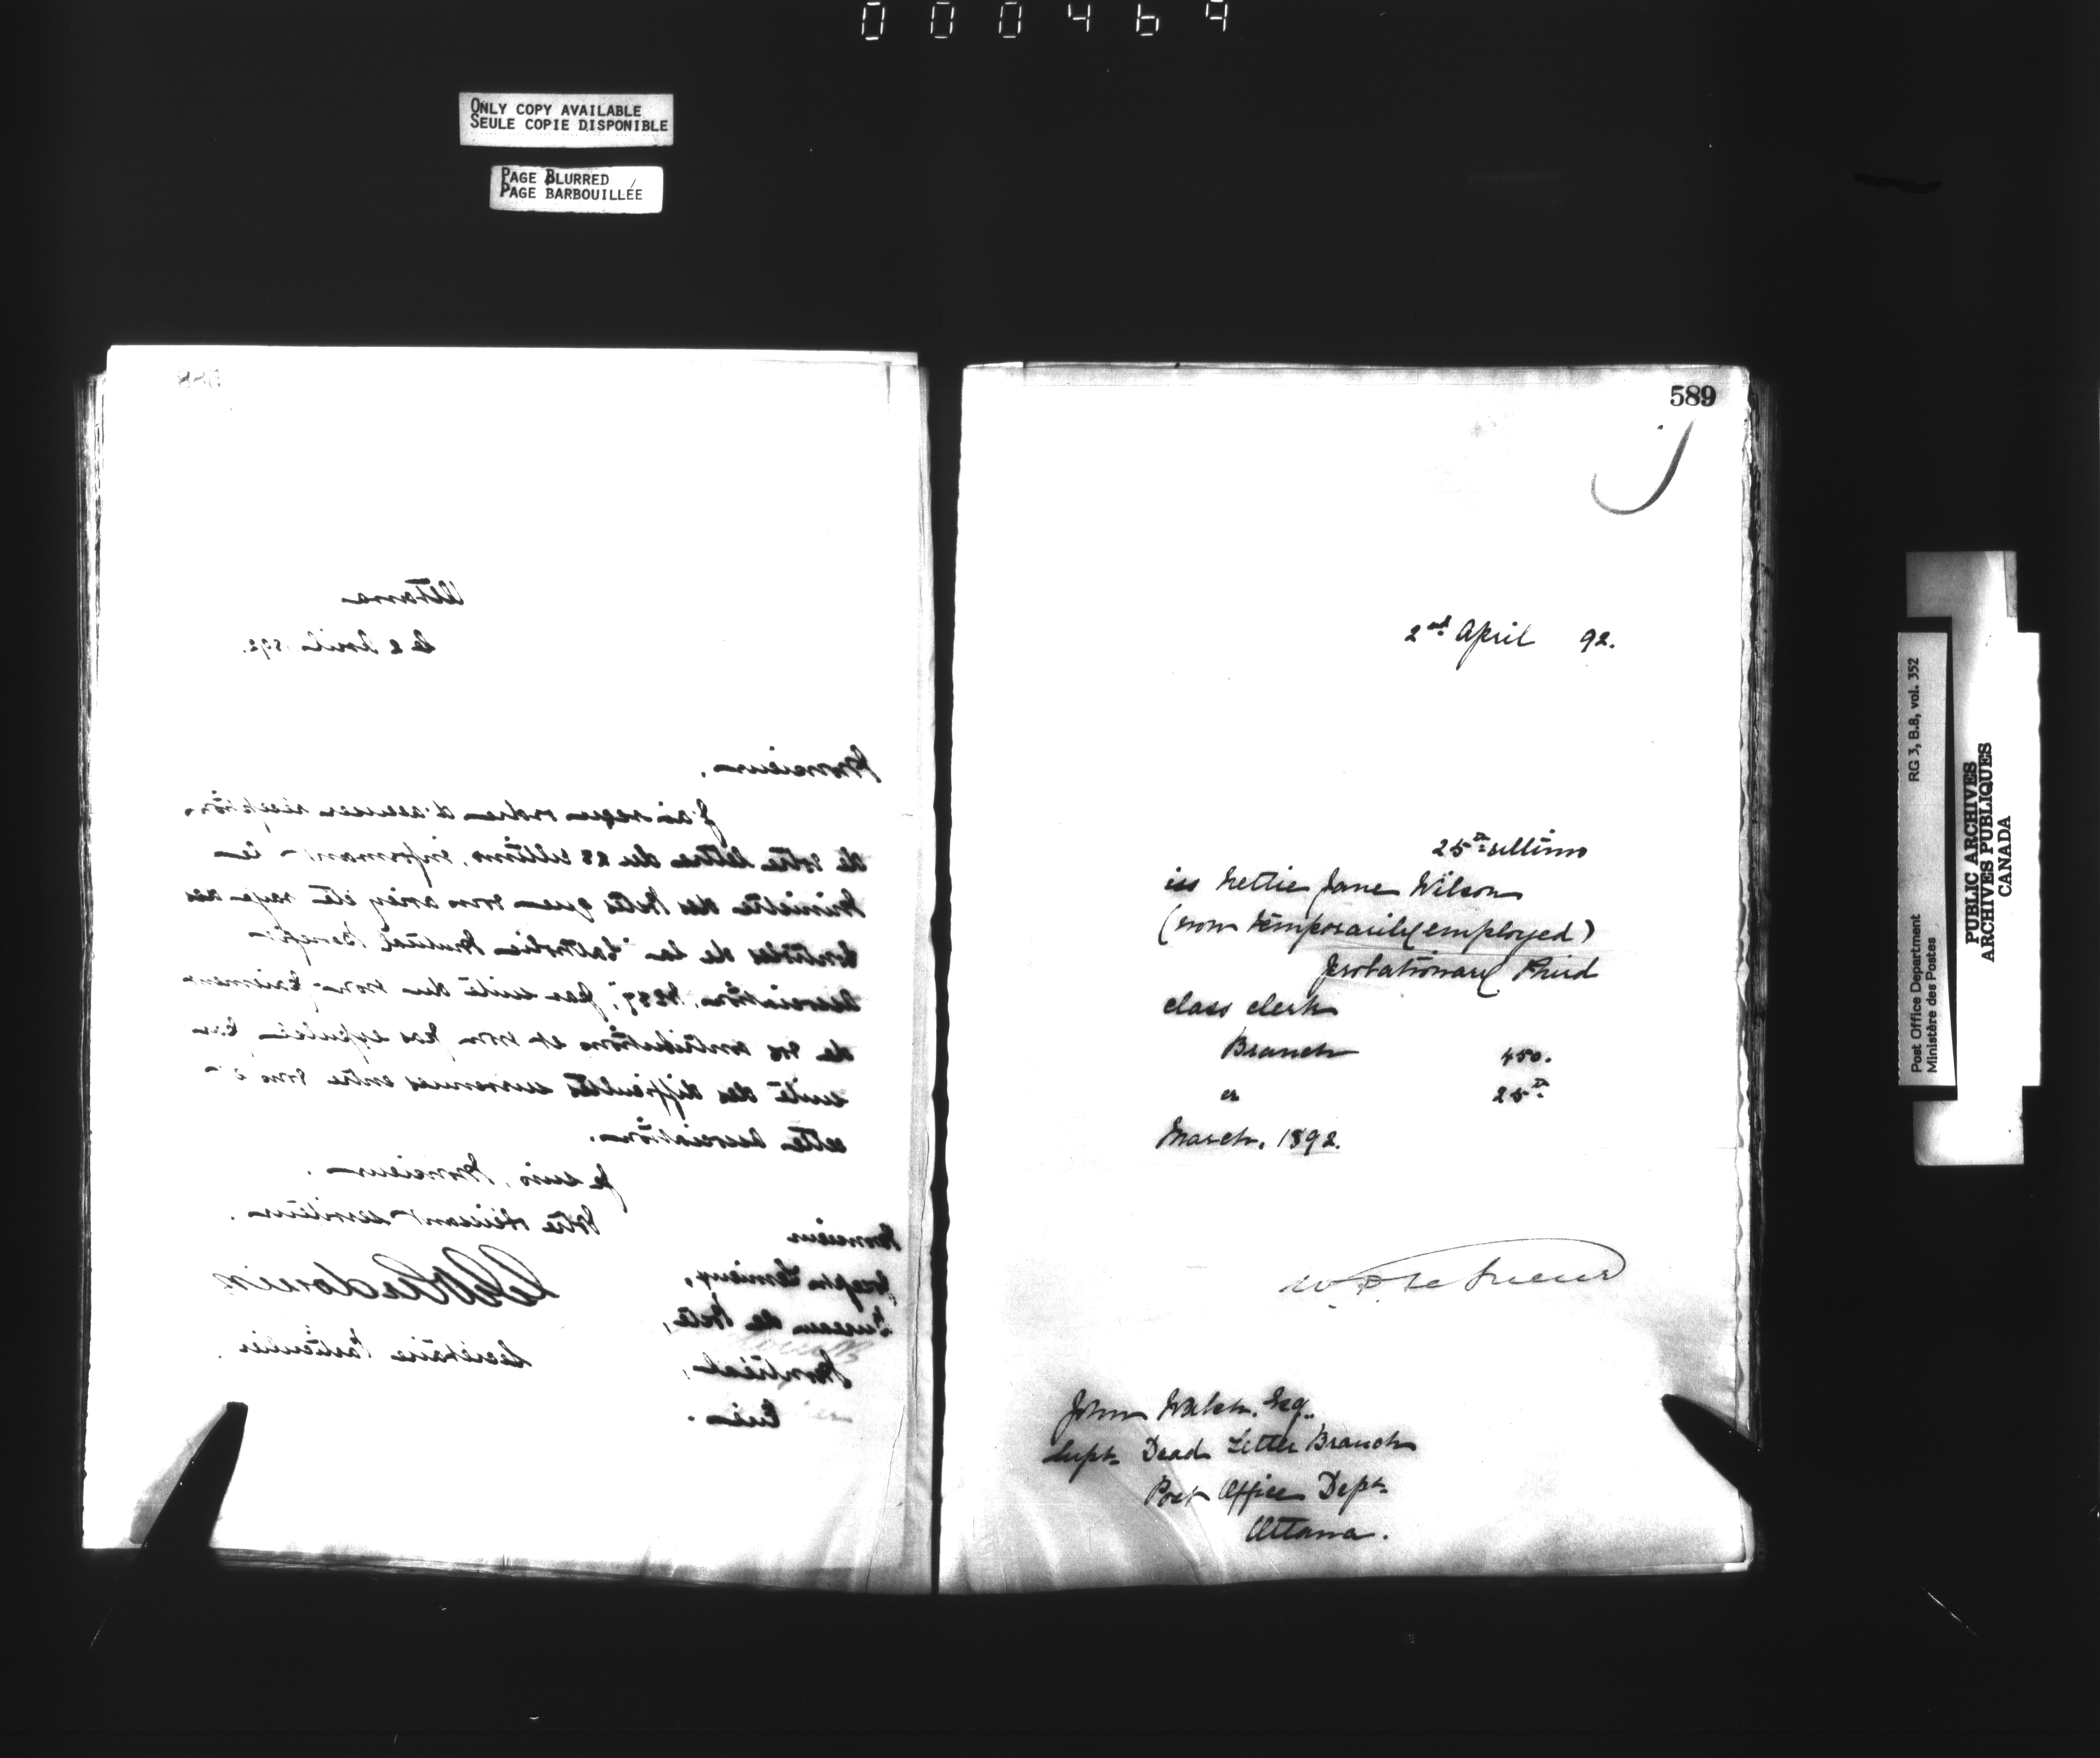 000469
ONLY COPY AVAILABLE
SEULE COPIE DISPONIBLE
PAGE BLURRED
PAGE BARBOUILLÉE
588
Ottawa
le 2 Avril 1892.
Monsieur,
J'ai reçu ordre d'accuser réception
de votre lettre du 23 ultimo, informant le
Ministre des Postes que vous aviez été rayé des
contrôles de la "Catholic Mutual Benefit
Association, 1889", par suite du non-paiement
de vos contributions et non pas expulsé par
suite des difficultés survenues entre vous et
cette Association.
Je suis, Monsieur,
Votre obéissant serviteur.
Secrétaire Particulier.
Monsieur
Joseph Lemieux,
Bureau de Poste,
Montréal,
589
2nd April 92.
25th ultimo
iss Nettie Jane Wilson
(now temporarily employed)
probationary Third
class clerk
Branch 450.
25th
March, 1892.
W. D. Le Sueur
John Walsh, Esq.
Supt. Dead Letter Branch
Post Office Dept.
Ottawa.
Post Office Department RG 3, B.8, vol. 352
Ministère des Postes
PUBLIC ARCHIVES
ARCHIVES PUBLIQUES
CANADA